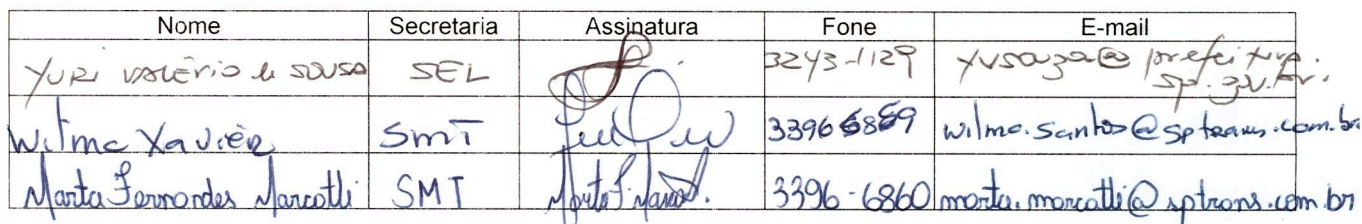 Nome Secretaria Assinatura Fone E-mail
YURI VALÉRIO de SOUSA SEL 3243-1129 yvsouza@prefeitura.
sp.gov.br.
Wilma Xavier SMT 3396 6859 wilma.santos@sptrans.com.br
Marta Fernandes Marcatti SMT Marta F. Marcat. 3396-6860 marta.marcatti@sptrans.com.br